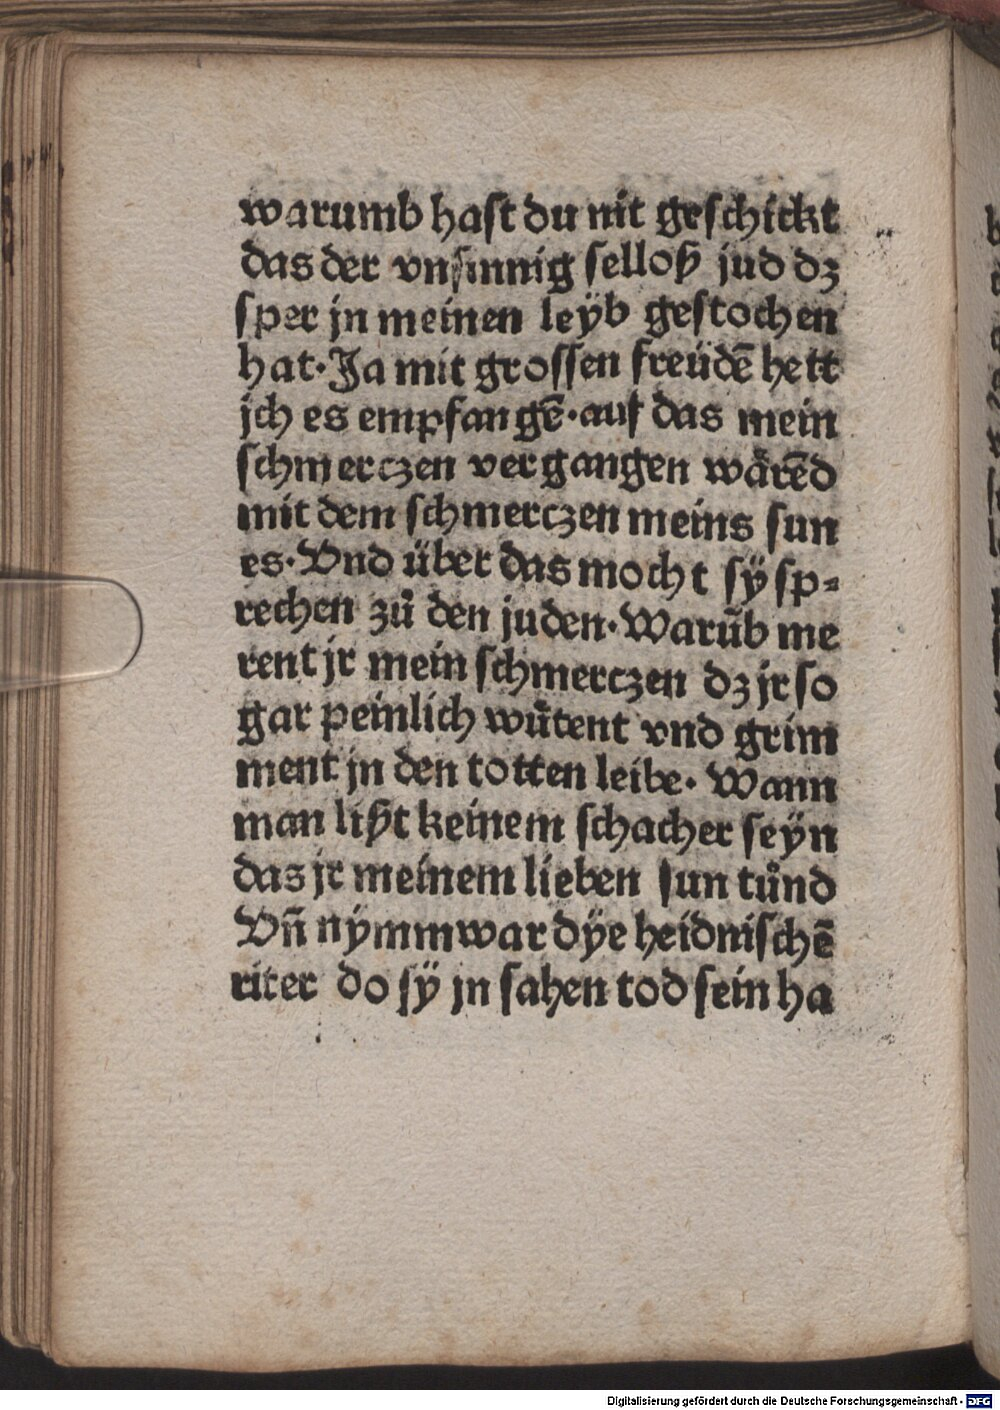 warumb hast du nit geschickt
das der vnsinnig selloß jud dz
sper jn meinen leÿb gestochen
hat·Ja mit grossen freüdē hett
jch es empfangē·auf das mein
schmerczen vergangen wärēd
mit dem schmerczen meins sun
es·Vnd über das mocht sÿ sp⸗
rechen zů den juden·Warūb me
rent jr mein schmerczen dz jr so
gar peinlich wůtent vnd grim
ment jn den totten leibe· Wann
man lißt keinem schacher seÿn
das jr meinem lieben sun tůnd
Vn̄ nÿmm war dÿe heidnischē
riter do sÿ jn sahen tod sein ha
Digitalisierung gefördert durch die Deutsche Forschungsgemeinschaft - DFG